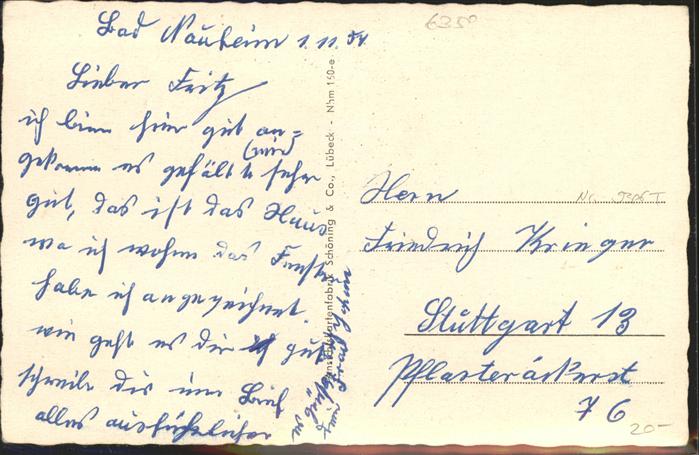 Bad Nauheim 1.11.54
Lieber Fritz
ich binn hier gut an=
gekommen es gefällt (mir) sehr
gut, das ist das Haus
wo ich wohne das Fenster
habe ich angezeichnet.
wie geht es dir gut
schreibe dir im Brief
alles ausführlicher
Schöning & Co., Lübeck - Nhm 160-e
Herrn
Friedrich Krieger
Stuttgart 13
Pflasteräckerst
76
6350
20-